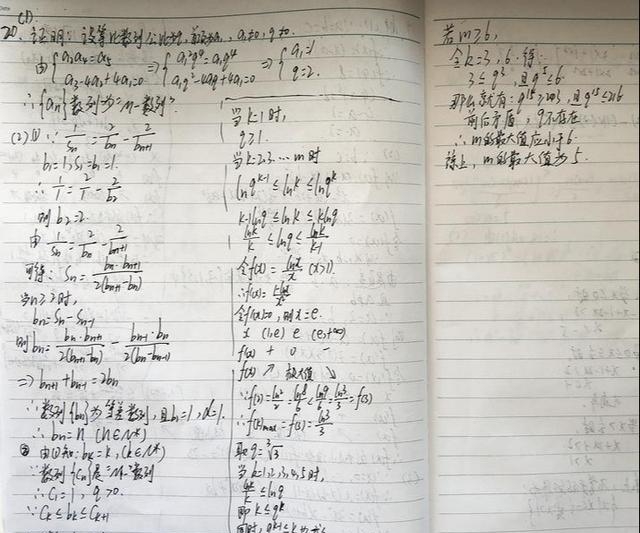 (1)
20. 证明:设等比数列公比为q,首项为a₁,a₁≠0,q≠0.
由{a₂a₄=a₅ a₃-4a₂+4a₁=0 ⇒ {a₁²q⁴=a₁q⁴ a₁q²-4a₁q+4a₁=0 ⇒ {a₁=1 q=2.
∴{aₙ}数列为"M-数列".
(2)① ∵1/Sₙ=2/bₙ-2/bₙ₊₁
b₁=1,S₁=b₁=1.
∴1/1=2/1-2/b₂
则b₂=2.
由1/Sₙ=2/bₙ-2/bₙ₊₁
可得:Sₙ=bₙ·bₙ₊₁/2(bₙ₊₁-bₙ)
当n≥2时,
bₙ=Sₙ-Sₙ₋₁
则bₙ=bₙ·bₙ₊₁/2(bₙ₊₁-bₙ)-bₙ₋₁·bₙ/2(bₙ-bₙ₋₁)
⇒bₙ₊₁+bₙ₋₁=2bₙ
∴数列{bₙ}为等差数列,且b₁=1,d=1.
∴bₙ=n (n∈N*)
② 由①知:bₖ=k,(k∈N*)
∵数列{Cₙ}是"M-"数列
∴C₁=1,q>0.
∵Cₖ≤bₖ≤Cₖ₊₁
当k=1时,
q≥1.
当k=2,3…m时
lnqᵏ⁻¹≤lnk≤lnqᵏ
k-1lnq≤lnk≤klnq
lnk/k≤lnq≤lnk/k-1
令f(x)=lnx/x (x>1).
∴f'(x)=1-lnx/x²
令f'(x)=0,则x=e.
x (1,e) e (e,+∞)
f'(x) + 0 -
f(x) ↗ 极大值 ↘
∵f(2)=ln2/2=ln8/6<ln9/6=ln3/3=f(3)
∴f(k)max=f(3)=ln3/3
取q=³√3
当k=1,2,3,4,5时,
lnk/k≤lnq
即k≤qᵏ
同时,qᵏ⁻¹≤k
若m≥6,
令k=3,6.得:
3≤q³,且q⁵≤6.
那么就有:q¹⁵≥243,且q¹⁵≤216
前后矛盾,q不存在
∴m的最大值应小于6.
综上,m的最大值为5.